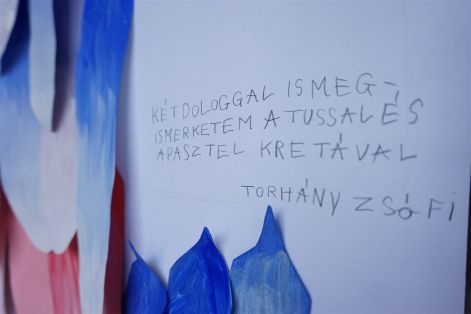 KÉTDOLOGGAL IS MEG-
ISMERKETEM A TUSSAL ÉS
A PASZTEL KRÉTÁVAL
TORHÁNY ZSÓFI